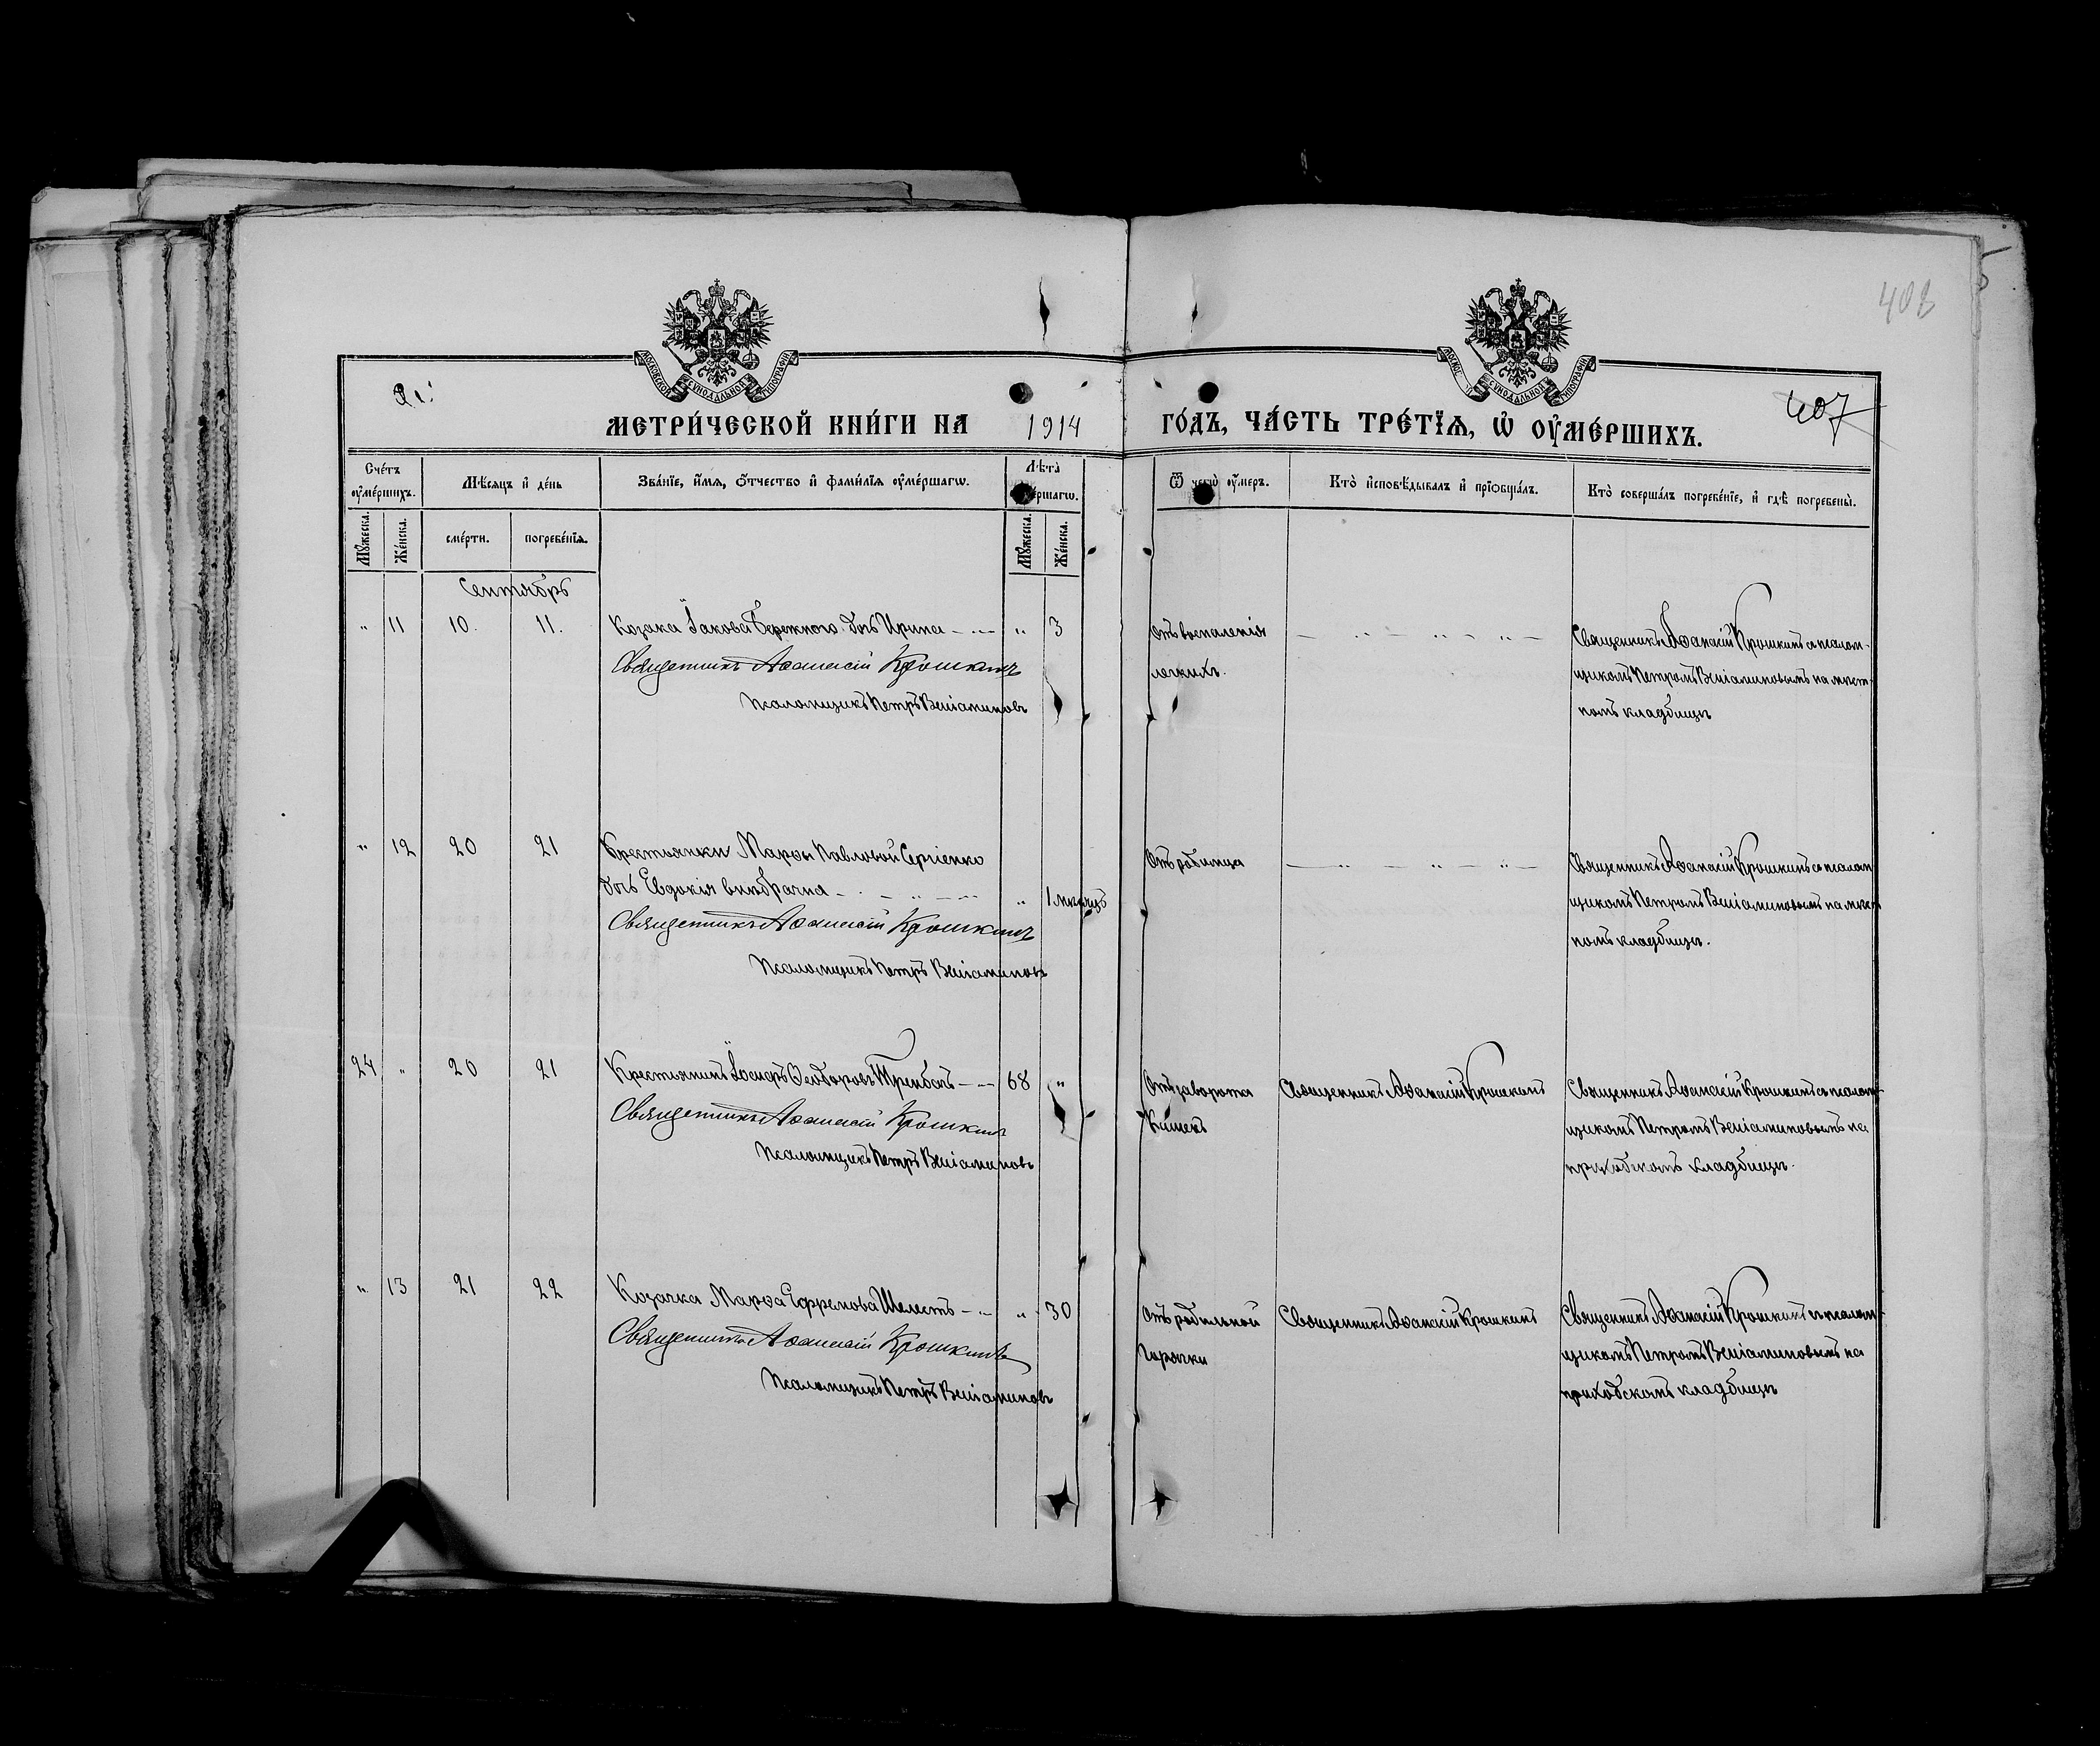 408
МОСКОВСКОЙ СѴНОДАЛЬНОЙ ТИПОГРАФІИ
СѴНОДАЛЬНОЙ ТИПОГРАФІИ
407
МЕТРИ́ЧЕСКОЙ КНИ́ГИ НА 1914 ГО́ДЪ, ЧА́СТЬ ТРЕ́ТЇѦ, Ѡ҆ ОУ҆МЕ́РШИХЪ.
Сче́тъ оу҆ме́ршихъ.
Мѣ́сяцъ и҆ де́нь
Зва́нїе, и҆́мѧ, ѻ҆́тчество и҆ фами́лїѧ оу҆ме́ршагѡ.
Лѣ́та оу҆ме́ршагѡ.
Ѿ чегѡ̀ оу҆́меръ.
Кто̀ и҆сповѣ́дывалъ и҆ прїѡбща́лъ.
Кто̀ соверша́лъ погребе́нїе, и҆ гдѣ̀ погребены̀.
Мꙋ́жеска. Же́нска. сме́рти. погребе́нїѧ. Мꙋ́жеска. Же́нска.
Сентябрь
" 11 10. 11. Козака Іакова Бережного дочь Ирина " 3
Священникъ Аѳанасій Крошкинъ
Псаломщикъ Петръ Веніаминовъ
Отъ воспаленія
легкихъ.
Священникъ Аѳанасій Крошкинъ съ псалом-
щикомъ Петромъ Веніаминовымъ на мѣст-
номъ кладбищѣ
" 12 20 21 Крестьянки Марѳы Павловой Сергіенко
дочь Евдокія внѣбрачна " 1 мѣсяцъ
Священникъ Аѳанасій Крошкинъ
Псаломщикъ Петръ Веніаминовъ
Отъ родимца
Священникъ Аѳанасій Крошкинъ съ псалом
щикомъ Петромъ Веніаминовымъ на мѣст
номъ кладбищѣ.
24 " 20 21 Крестьянинъ Іосифъ Ѳеодоровъ 68 "
Священникъ Аѳанасій Крошкинъ
Псаломщикъ Петръ Веніаминовъ
Отъ заворота
Кишекъ
Священникъ Аѳанасій Крошкинъ
Священникъ Аѳанасій Крошкинъ съ псалом-
щикомъ Петромъ Веніаминовымъ на
приходскомъ кладбищѣ.
" 13 21 22 Козачка Марѳа Ефремова Шелестъ " 30
Священникъ Аѳанасій Крошкинъ
Псаломщикъ Петръ Веніаминовъ
Отъ родильной
Горячки
Священникъ Аѳанасій Крошкинъ
Священникъ Аѳанасій Крошкинъ съ псалом-
щикомъ Петромъ Веніаминовымъ на
приходскомъ кладбищѣ